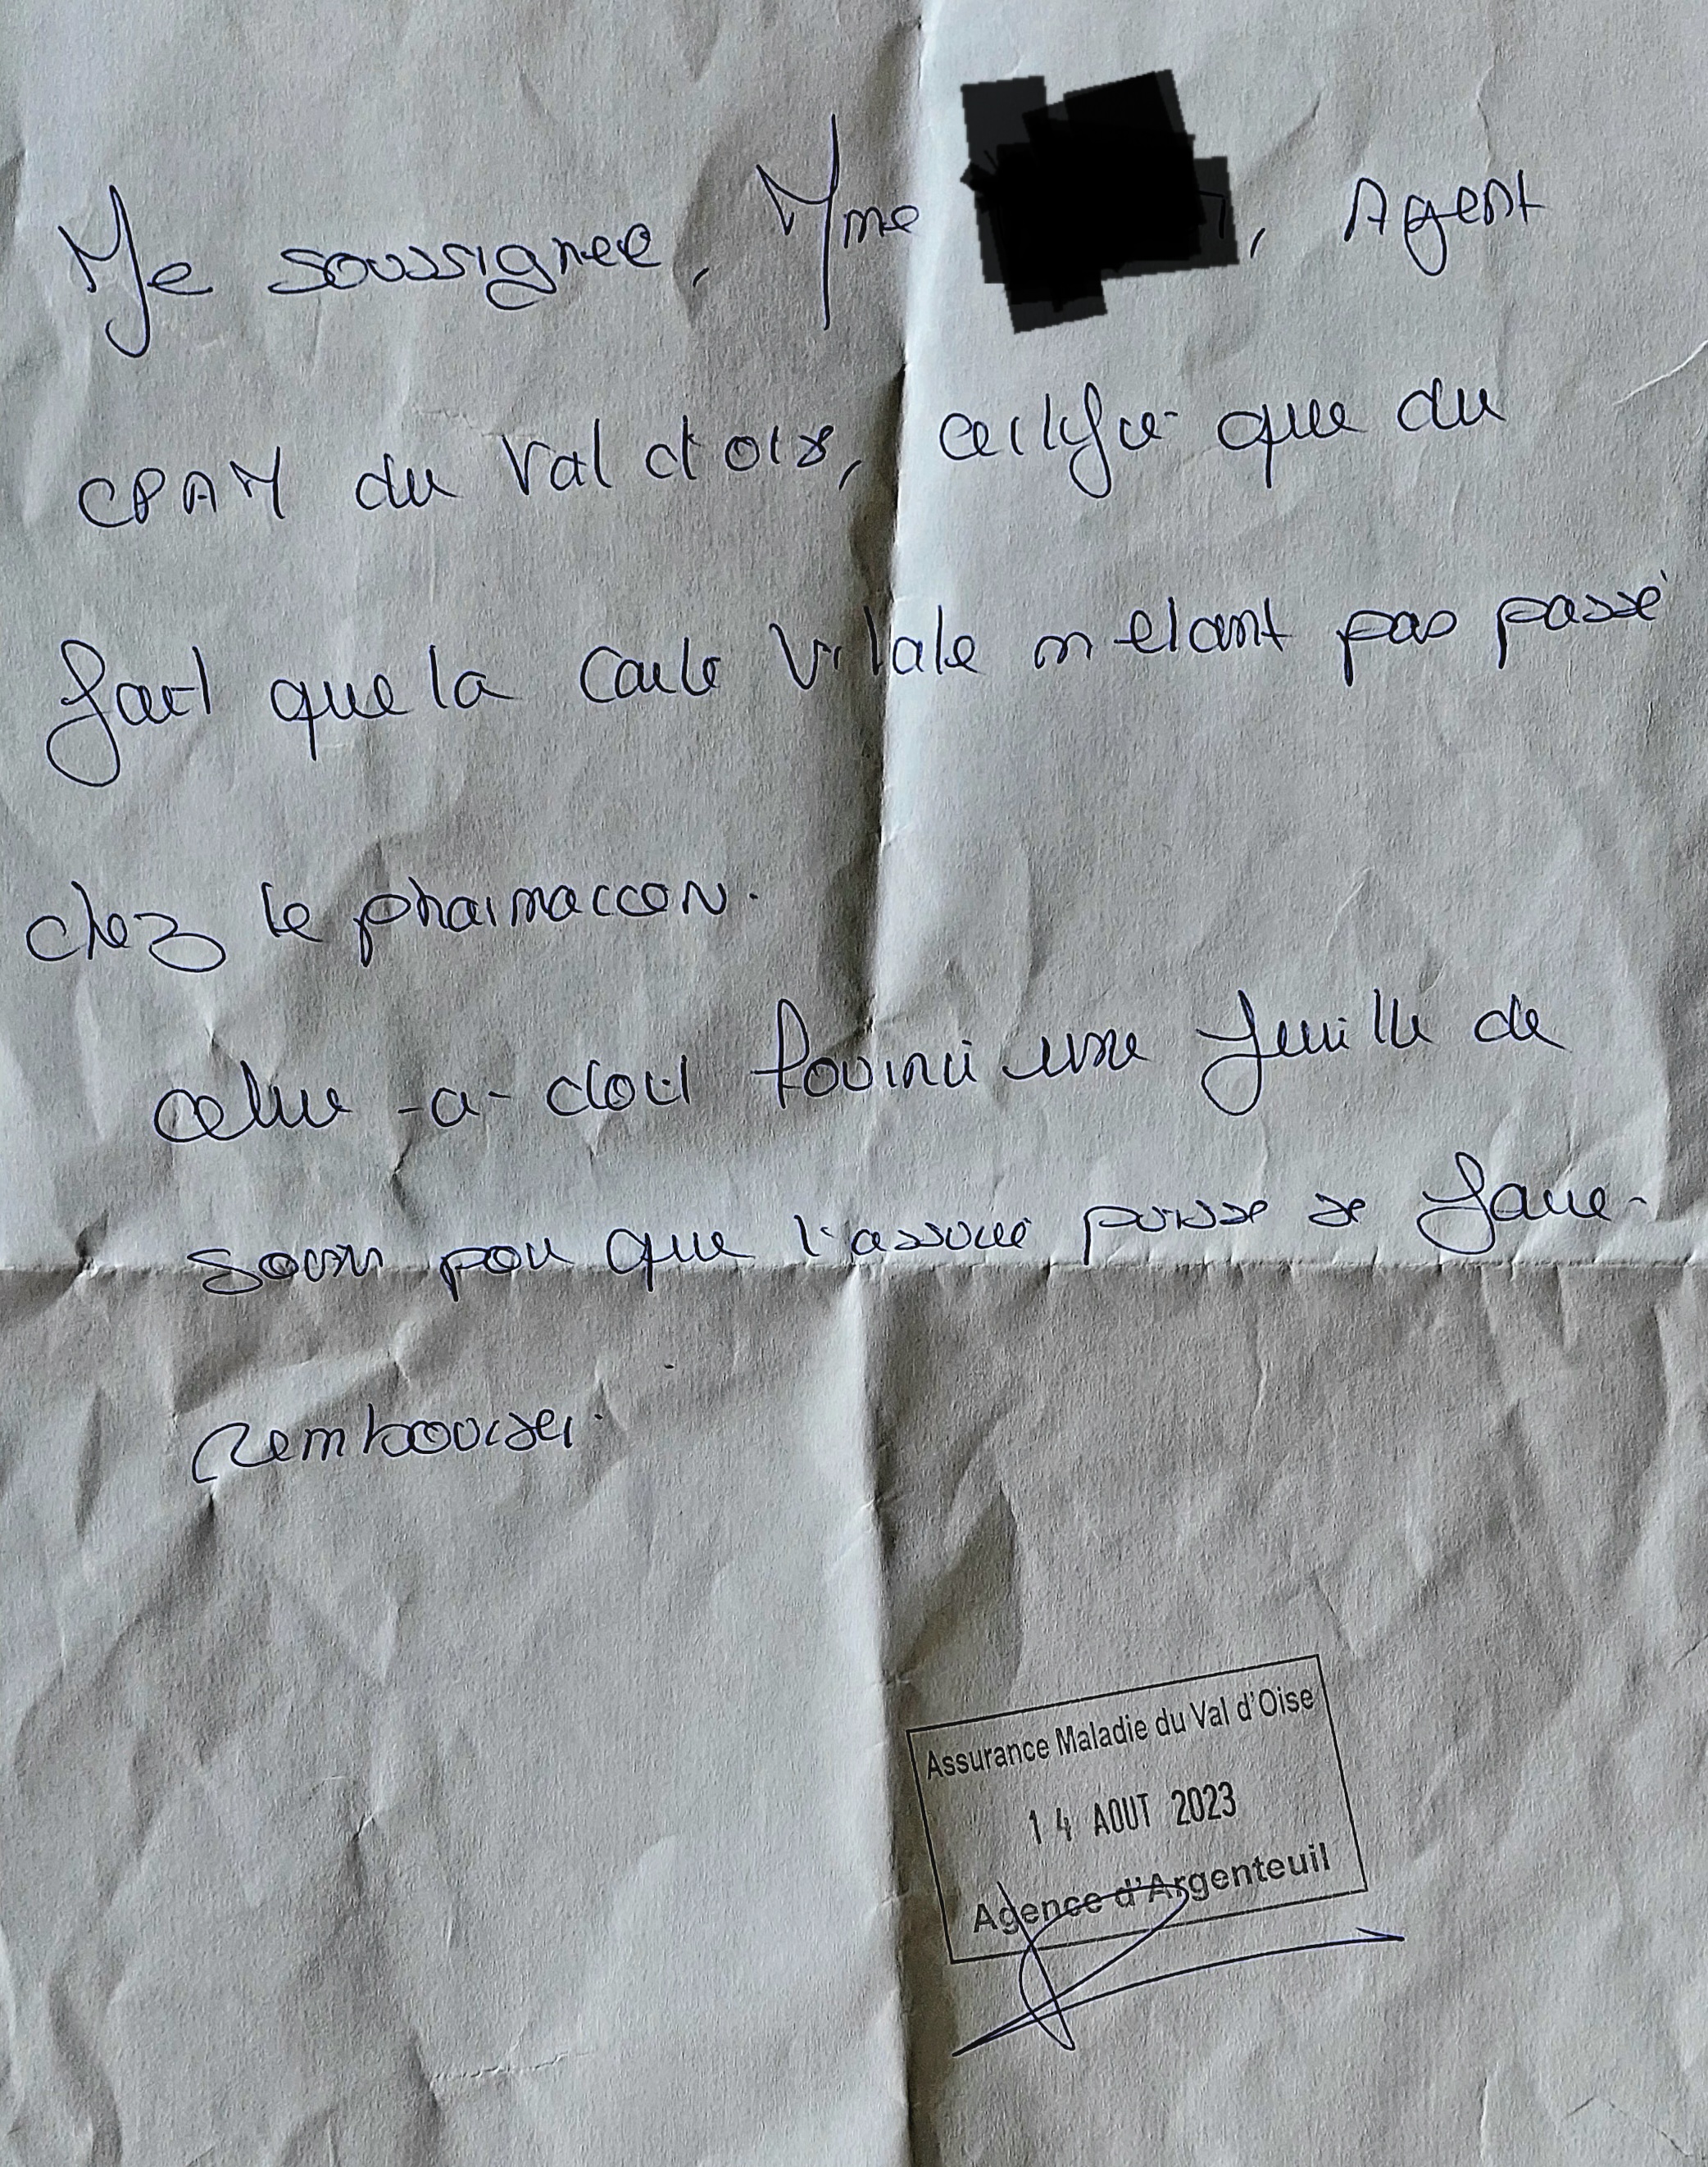 Je soussignee, Mme , Agent
CPAM du Val d'oise, certifie que du
fait que la carte Vitale n'etant pas passé
chez le pharmacien.
celui-ci doit fournir une feuille de
soin pour que l'assuré puisse se faire
rembourser.
Assurance Maladie du Val d'Oise
14 AOUT 2023
Agence d'Argenteuil